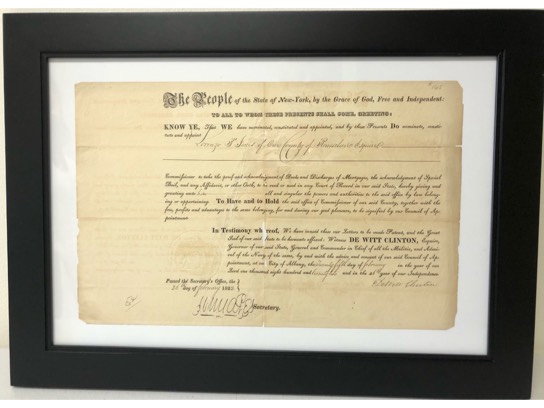 The People of the State of New-York, by the Grace of God, Free and Independent:
TO ALL TO WHOM THESE PRESENTS SHALL COME, GREETING:
KNOW YE, That WE have nominated, constituted and appointed, and by these Presents DO nominate, consti-
tute and appoint
of the County of Esquire
Commissioner to take the proof and acknowledgment of Deeds and Discharges of Mortgages, the acknowledgment of Special
Bail, and any Affidavits, or other Oath, to be used or read in any Court of Record in our said State, hereby giving and
granting unto him all and singular the powers and authorities to the said office by law belong-
ing or appertaining. To Have and to Hold the said office of Commissioner of our said County, together with the
fees, profits and advantages to the same belonging, for and during our good pleasure, to be signified by our Council of Ap-
pointment.
In Testimony whereof, We have caused these our Letters to be made Patent, and the Great
Seal of our said State to be hereunto affixed: Witness DE WITT CLINTON, Esquire,
Governor of our said State, General and Commander in Chief of all the Militia, and Admi-
ral of the Navy of the same, by and with the advice and consent of our said Council of Ap-
pointment, at our City of Albany, the day of February in the year of our
Lord one thousand eight hundred and and in the year of our Independence.
Passed the Secretary's Office, the
day of February
DeWitt Clinton
Secretary.